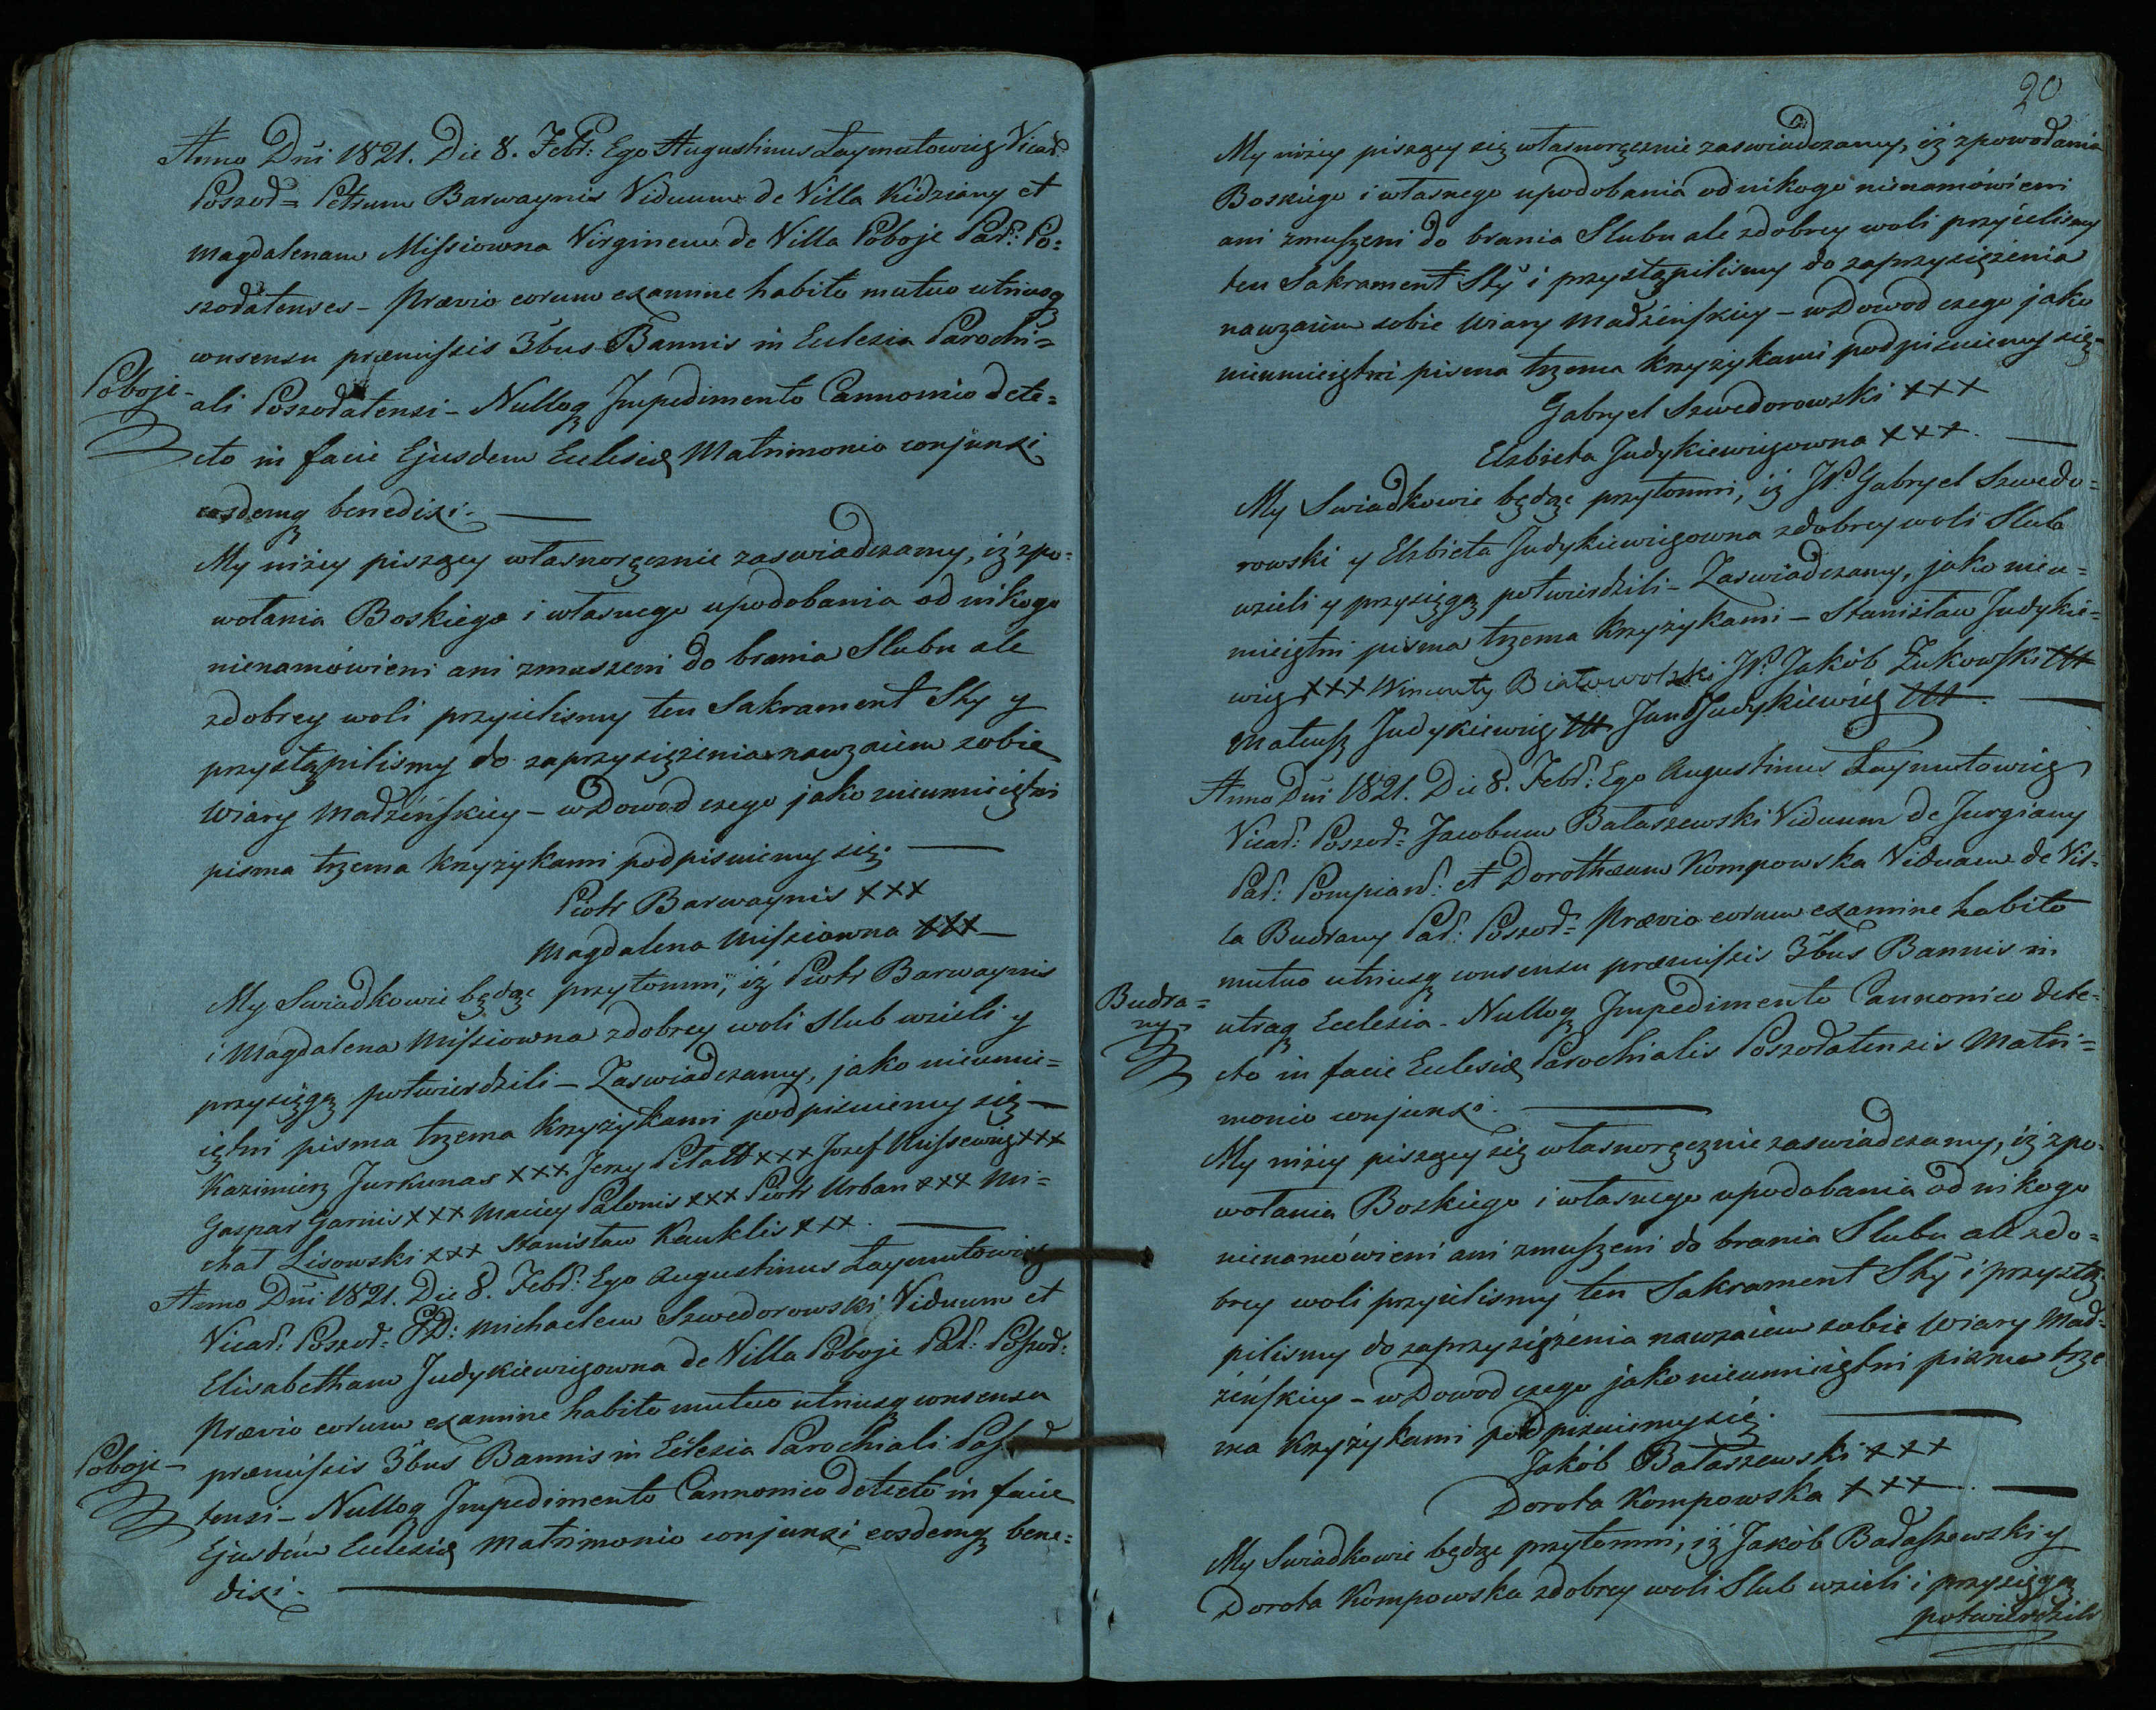 Anno Dñi 1821. Die 8. Febr: Ego Augustinus Laymutowicz Vicar:
Poszod= Petrum Barwaynis Viduum de Villa Kidziany et
Magdalenam Missiowna Virginem de Villa Poboje Par: Po=
szodatenses – Prævio eorum examine habito mutuo utriusq
consensu præmissis 3bus Bannis in Eclesia Parochi=
Poboje –
ali Poszodatensi – Nulloq Impedimento Cannonico dete=
cto in facie Ejusdem Eclesiæ Matrimonio conjunxi
eosdemq benedixi. —
My niżey piszący własnoręcznie zaswiadczamy, iż zpo=
wołania Boskiego i własnego upodobania od nikogo
nienamówieni ani zmuszeni do brania Slubu ale
zdobrey woli przyielismy ten Sakrament Sty y
przystąpilismy do zaprzysiężenia nawzaiem sobie
Wiary Madżeńskiey – w Dowod czego jako nieumieiętni
pisma trzema krzyżykami podpisuiemy się. —
Piotr Barwaynis xxx
Magdalena Missiowna xxx —
My Swiadkowie będąc przytomni, iż Piotr Barwaynis
i Magdalena Missiowna zdobrey woli Slub wzieli y
przysięgą potwierdzili – Zaswiadczamy, jako nieumie=
iętni pisma trzema krzyżykami podpisuiemy się —
Kazimierz Jurkunas xxx Jerzy Pitalt xxx Jozef Missewicz xxx
Gaspar Garnis xxx Maciey Palonis xxx Piotr Urban xxx Mi=
chał Lisowski xxx Stanisław Kauklis xxx. —
Anno Dñi 1821. Die 8. Febr: Ego Augustinus Laymutowicz
Vicar: Poszod: GD: Michaelem Szwedorowski Viduum et
Elisabetham Judykiewiczowna de Villa Poboje Par: Poszod:
Prævio eorum examine habito mutuo utriusq consensu
præmissis 3bus Bannis in Eclesia Parochiali
Poboje –
tensi – Nulloq Impedimento Cannonico detecto in facie
Ejusdem Eclesiæ Matrimonio conjunxi eosdemq bene=
dixi. —
20
My niżey piszący się własnoręcznie zaswiadczamy, iż zpowołania
Boskiego i własnego upodobania od nikogo nienamówieni
ani zmuszeni do brania Slubu ale zdobrey woli przyielismy
ten Sakrament Sty i przystąpilismy do zaprzysiężenia
nawzaiem sobie Wiary Madżeńskiey – w Dowod czego jako
nieumieiętni pisma trzema krzyżykami podpisuiemy się –
Gabryel Szwedorowski xxx
Elzbieta Judykiewiczowna xxx. —
My Swiadkowie będąc przytomni, iż JP. Gabryel Szwedo=
rowski y Elzbieta Judykiewiczowna zdobrey woli Slub
wzieli y przysięgą potwierdzili – Zaswiadczamy, jako nieu=
mieiętni pisma trzema krzyżykami – Stanisław Judykie=
wicz xxx Wincenty Białowolski JP. Jakób Zukowski xxx
Mateusz Judykiewicz xxx Jan Judykiewicz xxx. —
Anno Dñi 1821. Die 8. Febr: Ego Augustinus Laymutowicz
Vicar: Poszod= Jacobum Bałaszewski Viduum de Jurgiany
Par: Pompian: et Dorotheam Kompowska Viduam de Vil=
la Budrany Par: Poszod= Prævio eorum examine habito
mutuo utriusq consensu præmissis 3bus Bannis in
Budra=
ny –
utraq Eclesia – Nulloq Impedimento Cannonico dete=
cto in facie Eclesiæ Parochialis Poszodatensis Matri=
monio conjunxi. —
My niżey piszący się własnoręcznie zaswiadczamy, iż zpo=
wołania Bozkiego i własnego upodobania od nikogo
nienamówieni ani zmuszeni do brania Slubu ale zdo=
brey woli przyielismy ten Sakrament Sty i przystą=
pilismy do zaprzysiężenia nawzaiem sobie Wiary Mad=
żeńskiey – w Dowod czego jako nieumieiętni pisma trze
ma krzyżykami podpisuiemy się. —
Jakób Bałaszewski xxx
Dorota Kompowska xxx. —
My Swiadkowie będąc przytomni, iż Jakób Bałaszewski y
Dorota Kompowska zdobrey woli Slub wzieli i przysięgą
potwierdzili